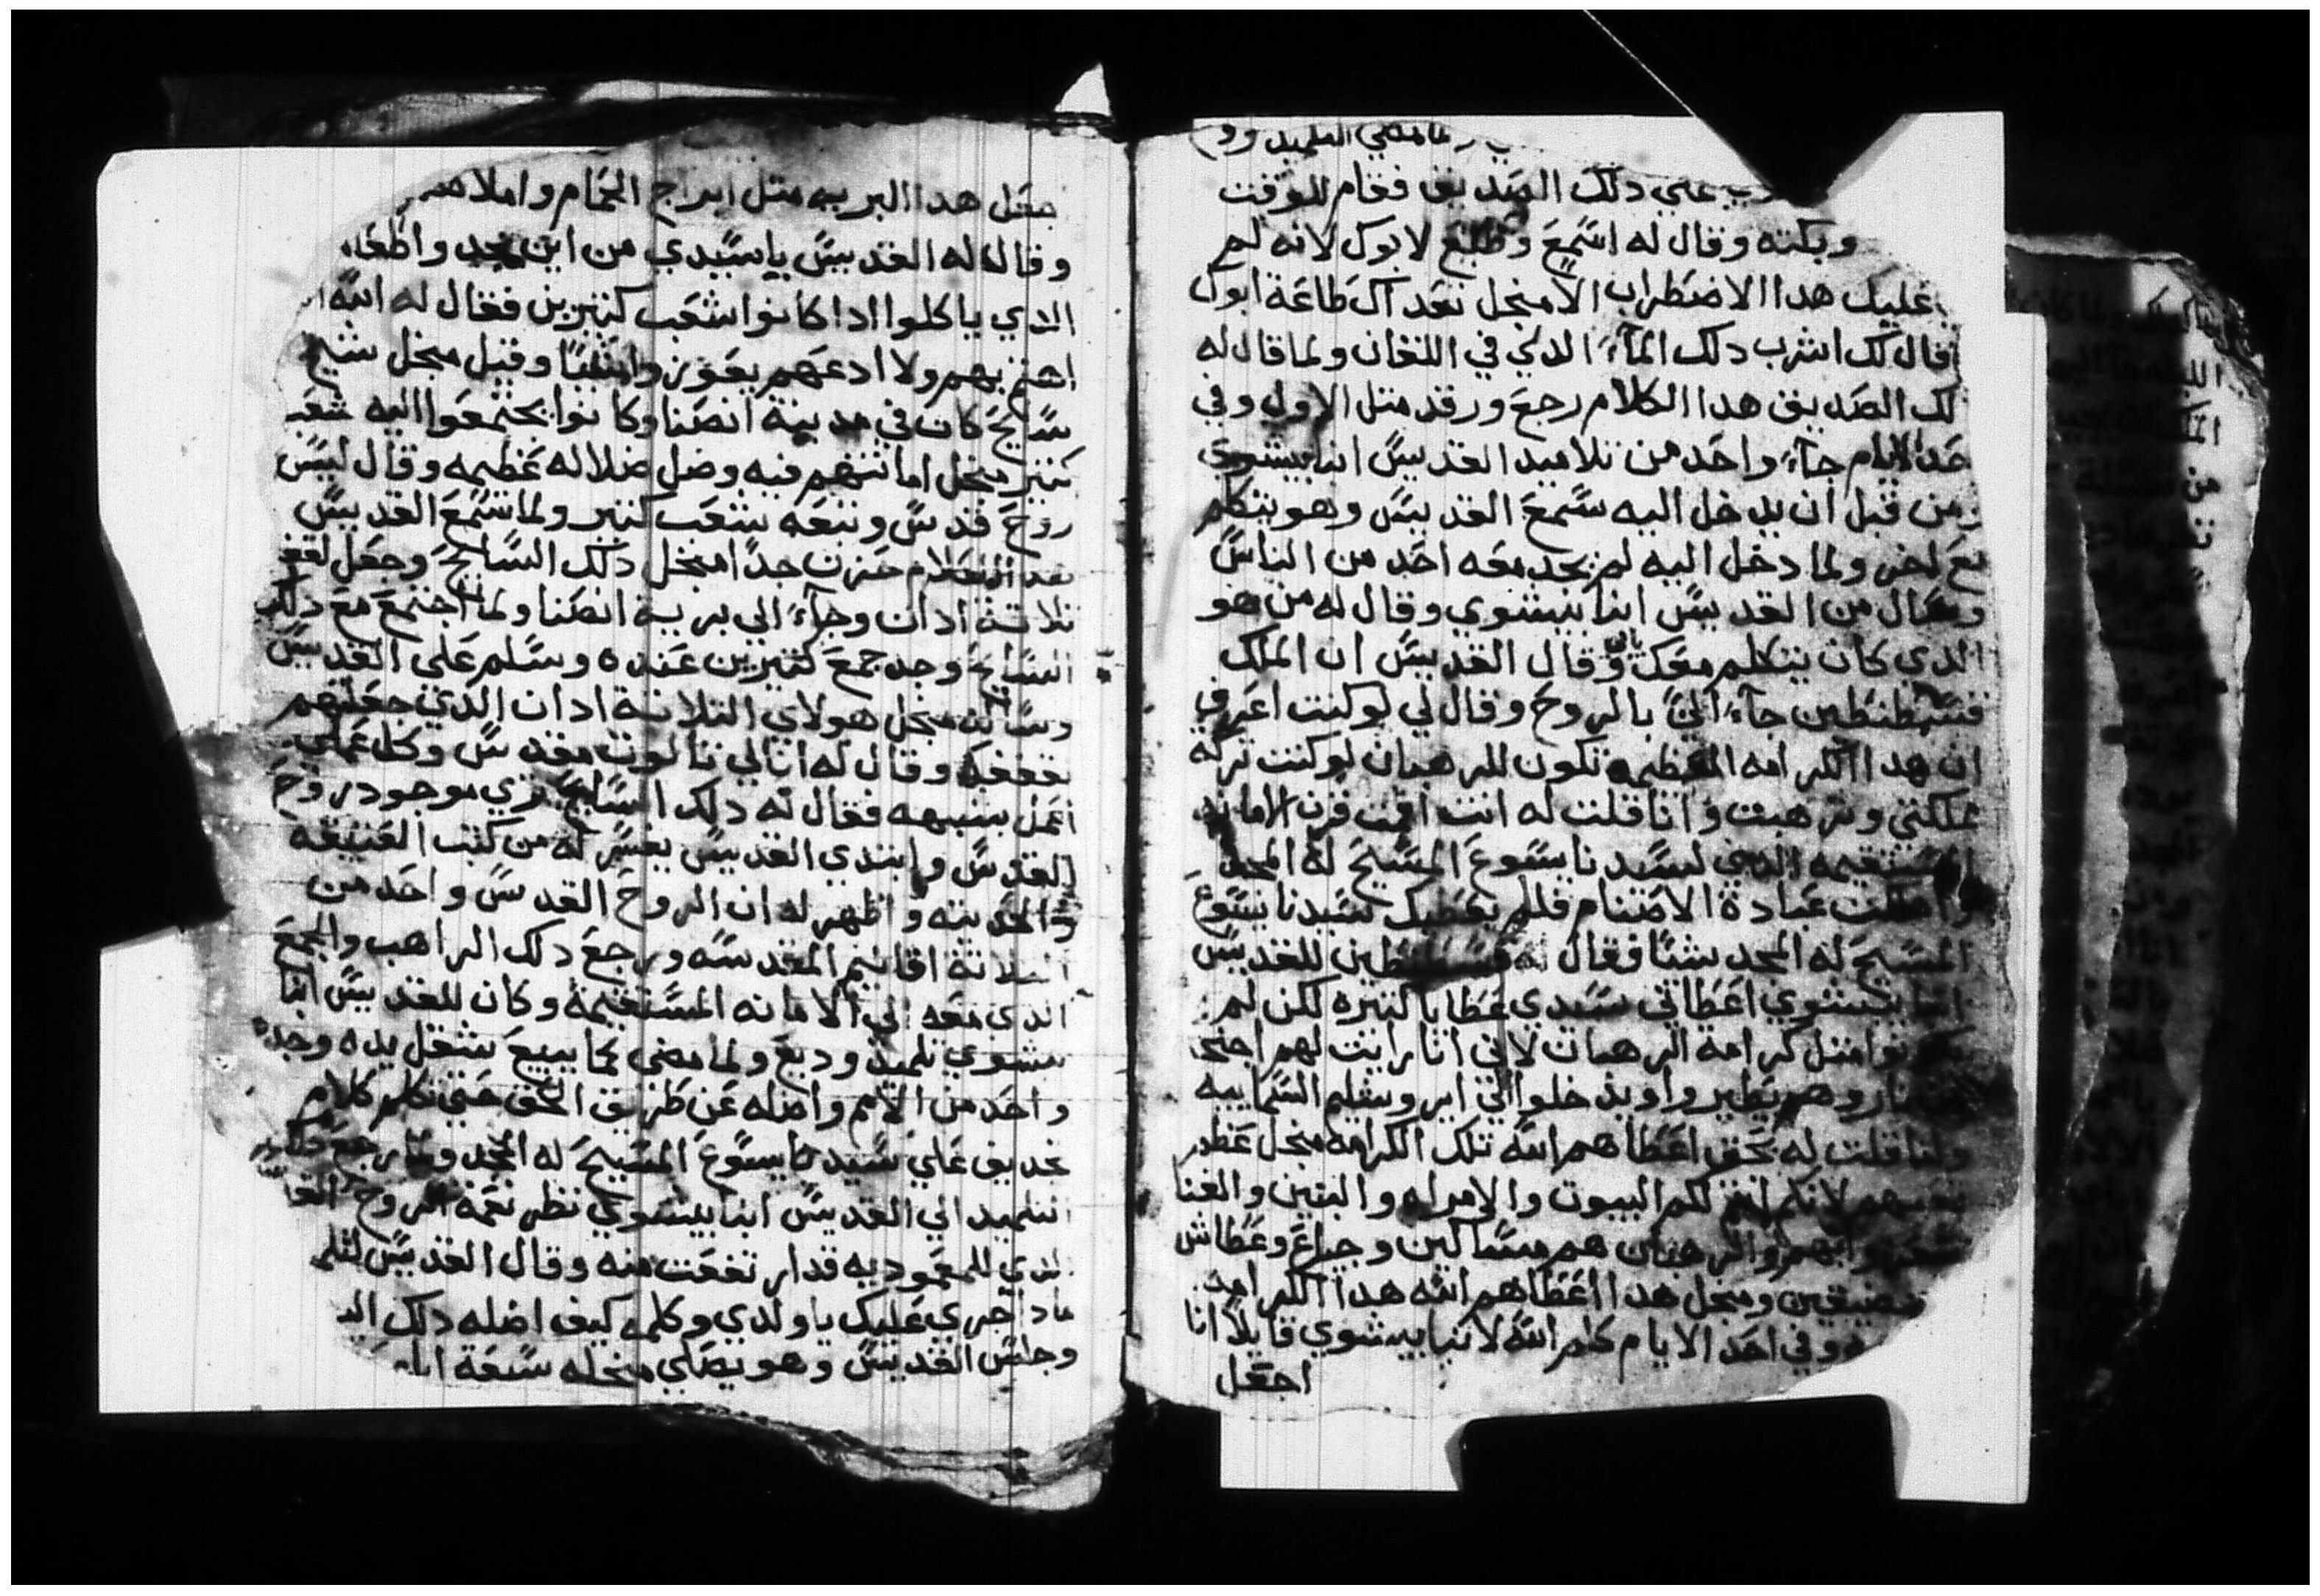 ولما مضي التلميد
علي دلك الصديق فقام للوقت
وبكته وقال له اسمع وطلع لابوك لانه لم
عليك هدا الاضطراب الا منجل تعد اك طاعة ابوك
قال لك اشرب دلك المآء الدي في اللقان ولما قال له
لك الصديق هدا الكلام رجع ورقد متل الاول وفي
حد الايام جآء واحد من تلاميد القديس انبا بيشوي
ومن قبل ان يدخل اليه سمع القديس وهو يتكلم
مع اخر ولما دخل اليه لم يجد معه احد من الناس
وسال من القديس انبا بيشوي وقال له من هو
الدي كان يتكلم معك وقال القديس ان الملك
قسطنطين جآء الي بالروح وقال لي لو كنت اعرف
ان هدا الكرامه العظيمه تكون للرهبان لو كنت تركة
مملكتي وترهبت وانا قلت له انت اقمت قرن الامانه
المستقيمه الدي لسيدنا يسوع المسيح له المجد
وابطلت عبادة الاصنام فلم يعطيك سيدنا يسوع
المسيح له المجد شيًا فقال له قسطنطين للقديس
انبا بيشوي اعطاني سيدي عطايا كتيره لكن لم
يكونوا متل كرامة الرهبان لاني انا رايت لهم اجنحه
من نار وهم يطير واويدخلوا الي ايروشليم السماييه
وانا قلت له بحق اعطاهم الله تلك الكرامه منجل عظم
تعبهم لانكم انتم لكم البيوت والامراه والبنين والغنا
والرهبان هم مساكين وجياع وعطاش
مضيقين ومنجل هدا اعطاهم الله هدا الكرامه
وفي احد الايام كلم الله لانبا بيشوي قايلاً انا
اجعل
جعل هدا البريه متل ابراج الحمام واملاهم
وقال له القديس يا سيدي من اين تجد واطعام
الدي ياكلوا ادا كانوا شعب كتيرين فقال له الله انا
اهتم بهم ولا ادعهم يعوزوا شيًا وقيل منجل شيخ
سايح كان في مدينة انصنا وكانوا يجتمعوا اليه شعب
كتير منجل امانتهم فيه وضل ضلاله عظيمه وقال ليس
روح قدس وتبعه شعب كتير ولما سمع القديس
بهدا الكلام حزن جدًا منجل دلك السايح وجعل لقفه
تلاتة ادان وجآء الي برية انصنا ولما اجتمع مع دلك
السايح وجد جمع كتيرين عنده وسلم علي القديس
وساله منجل هولاي التلاتة ادان الدي جعلتهم
بقففك وقال له انا لي تالوت مقدس وكل عملي
اعمل بشبهه فقال له دلك السايح تري موجود روح
القدس وابتدي القديس يفسر له من كتب العتيقه
والحديته واظهر له ان الروح القدس واحد من
التلاتة اقانيم المقدسه ورجع دلك الراهب والجمع
الدي معه الي الامانه المستقيمة وكان للقديس انبا
بيشوي تلميد وديع ولما مضي كما يبيع شغل يده وجده
واحد من الامم واضله عن طريق الحق حتي تكلم كلام
تجديف علي سيدنا يسوع المسيح له المجد ولما رجع دلك
التلميد الي القديس انبا بيشوي نظر نعمة الروح القدس
الدي للمعموديه قد ارتفعت منه وقال القديس لتلم
مادا جري عليك يا ولدي وكلمه كيف اضله دلك
وجلس القديس وهو يصلي منجله سبعة ايام